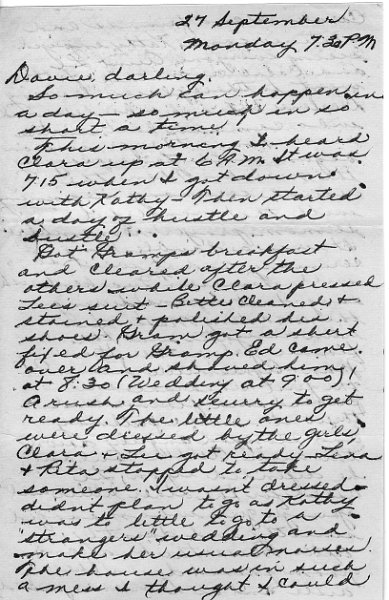 27 September
Monday 7.30 P.M
Davie, darling.
So much can happen in
a day - so much in so
short a time.
This morning I heard
Clara up at 6 A.M. It was
7:15 when I got down
with Kathy - Then started
a day of hustle and
bustle.
Got Gramps breakfast
and cleared after the
others while Clara pressed
Lee's suit - Bette cleaned &
stained & polished his
shoes. Gram got a shirt
fixed for Gramp. Ed came
over and shaved him
at 8:30 (Wedding at 9:00)!
A rush and scurry to get
ready. The little ones
were dressed by the girls,
Clara & Lee got ready
& Rita stopped to take
someone. I wasn't dressed -
didn't plan to go as Kathy
was to little to go to a
"strangers" wedding and
make her usual noises.
The house was in such
a mess I thought I could